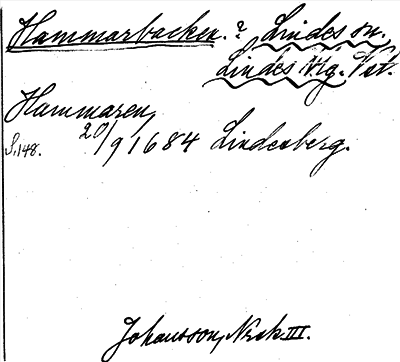 Hammarbacken. ? Lindes sn.
Lindes Btg. Vst.
Hammaren,
S. 148. 20/9 1684 Lindesberg.
Johansson, Norsk III.